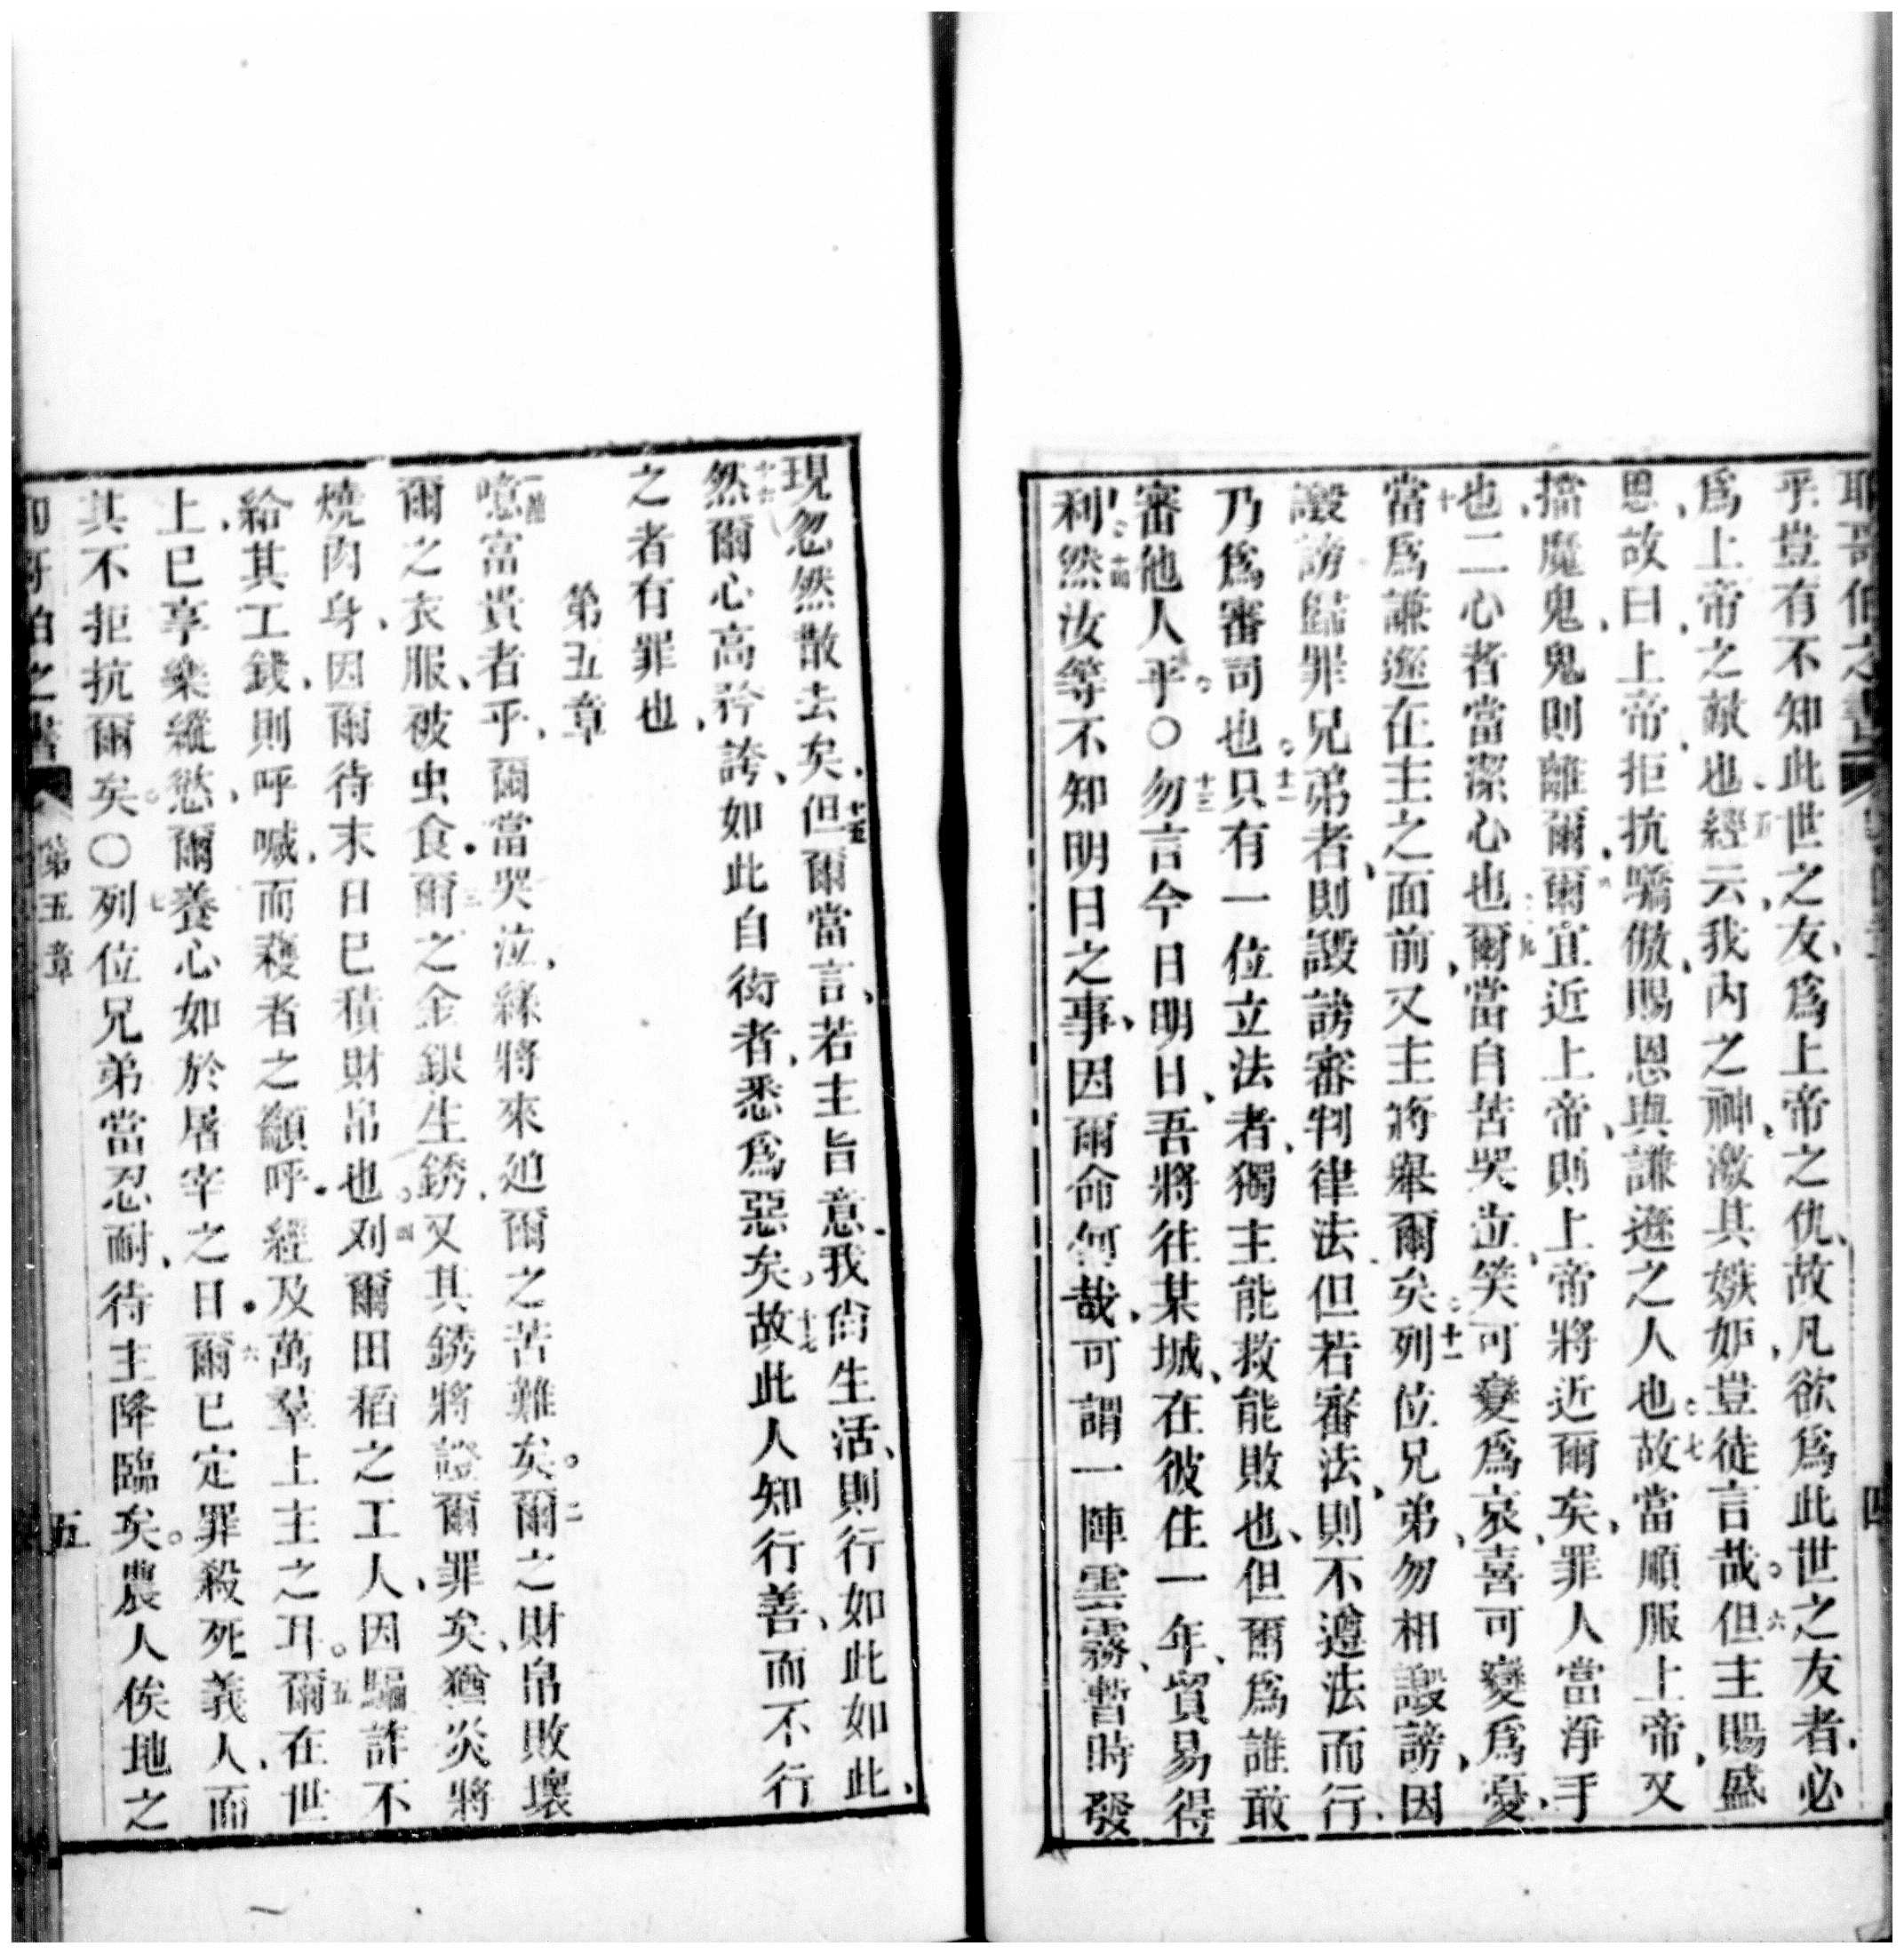 耶哥伯之書 第四章 四
乎豈有不知此世之友、爲上帝之仇、故凡欲爲此世之友者、必
爲上帝、之敵也、五經云、我內之神、激其嫉妒、豈徒言哉。六但主賜盛
恩、故曰、上帝、拒抗驕傲、賜恩與謙遜之人也。七故當順服上帝、又
擋魔鬼、鬼則離爾、八爾宜近上帝、則上帝將近爾矣、罪人當淨手
也、二心者當潔心也。九爾當自苦哭泣、笑可變爲哀、喜可變爲憂、
十當爲謙遜在主之面前、又主將舉爾矣。十一列位兄弟、勿相譭謗、因
譭謗歸罪兄弟者、則譭謗審判律法、但若審法、則不遵法而行、
乃爲審司也。十二只有一位立法者、獨主能救能敗也、但爾爲誰敢
審他人乎。〇十三勿言今日明日、吾將往某城、在彼住一年、貿易得
利。十四然汝等不知明日之事、因爾命何哉、可謂一陣雲霧、暫時發
現忽然散去矣、十五但爾當言、若主旨意、我尙生活、則行如此如此、
十六然爾心高矜誇、如此自衒者、悉爲惡矣。十七故此人知行善、而不行
之者有罪也、
第五章
一節噫富貴者乎、爾當哭泣、緣將來廹爾之苦難矣。二爾之財帛敗壞
爾之衣服、被虫食。三爾之金銀生銹、又其銹將證爾罪矣、猶炎將
燒肉身、因爾待末日已積財帛也。四刈爾田稻之工人、因騙詐不
給其工錢、則呼喊、而穫者之顲呼、經及萬羣上主之耳。五爾在世
上、巳享樂縱慾、爾養心如於屠宰之日。六爾已定罪殺死義人、而
其不拒抗爾矣。〇七列位兄弟當忍耐、待主降臨矣。農人俟地之
耶哥伯之書 第五章 五